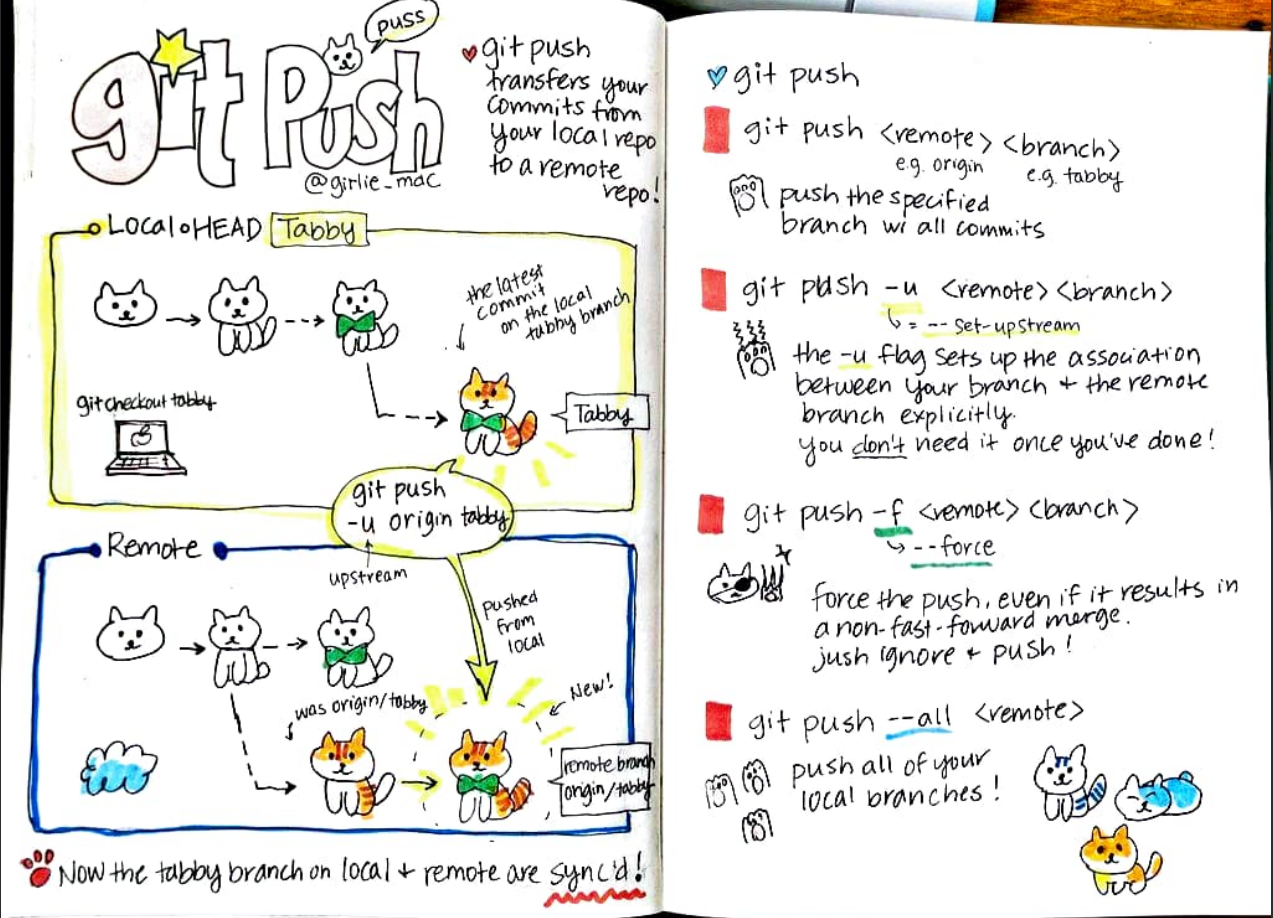 git Push
puss
@girlie_mac
git push
transfers your
commits from
your local repo
to a remote
repo!
Local HEAD Tabby
the latest
commit
on the local
tabby branch
git checkout tabby
Tabby
git push
-u origin tabby
upstream
Remote
pushed
from
local
was origin/tabby
New!
remote branch
origin/tabby
Now the tabby branch on local + remote are sync'd!
git push
git push <remote> <branch>
e.g. origin e.g. tabby
push the specified
branch w/ all commits
git push -u <remote> <branch>
= --set-upstream
the -u flag sets up the association
between your branch + the remote
branch explicitly.
you don't need it once you've done!
git push -f <remote> <branch>
--force
force the push, even if it results in
a non-fast-forward merge.
jush ignore + push!
git push --all <remote>
push all of your
local branches!